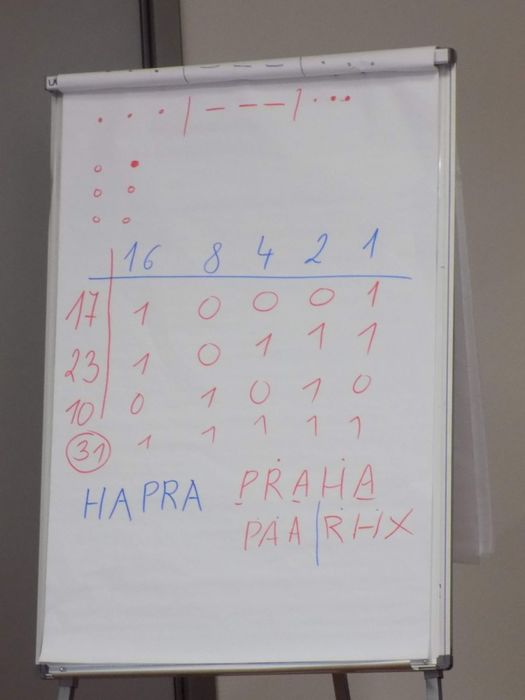 . . . | — — — | . . .
16 8 4 2 1
17 1 0 0 0 1
23 1 0 1 1 1
10 0 1 0 1 0
31 1 1 1 1 1
HAPRA PRAHA
PAA | RHX